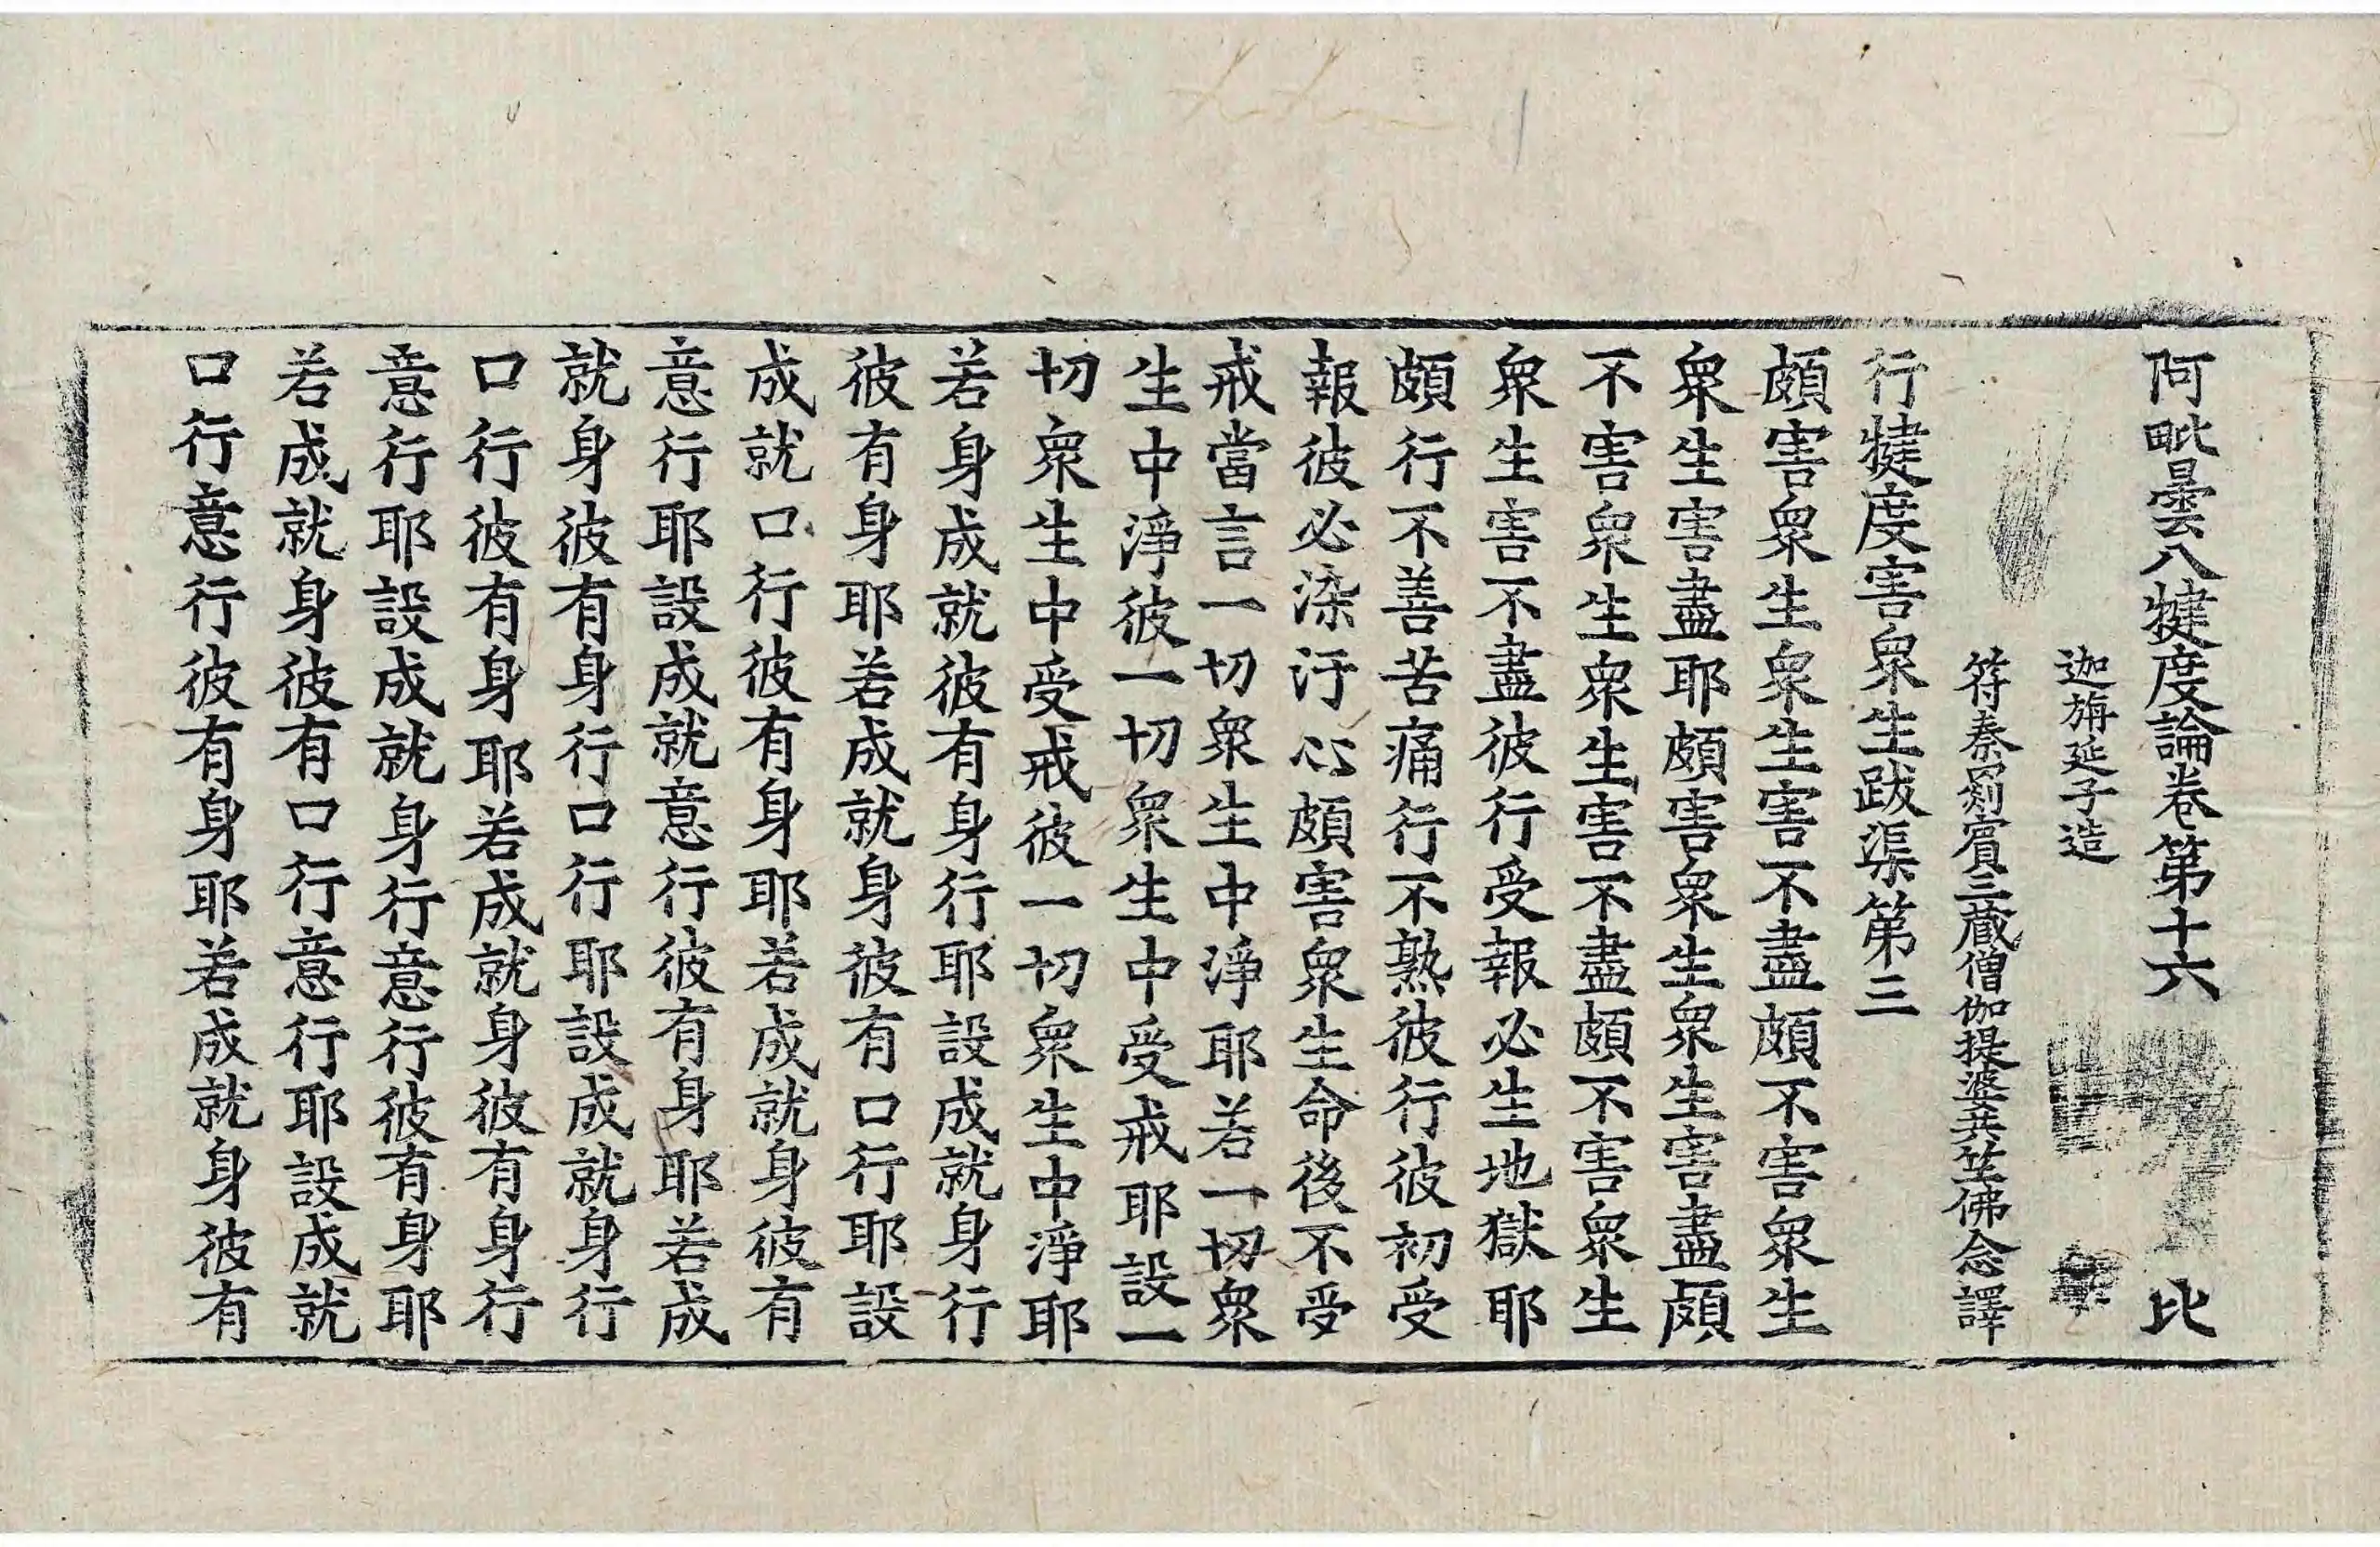 阿毗曇八犍度論卷第十六 比
迦旃延子造
符秦罽賓三藏僧伽提婆共竺佛念譯
行犍度害衆生跋渠第三
頗害衆生衆生害不盡頗不害衆生
衆生害盡耶頗害衆生衆生害盡頗
不害衆生衆生害不盡頗不害衆生
衆生害不盡彼行受報必生地獄耶
頗行不善苦痛行不熟彼行彼初受
報彼必染汙心頗害衆生命後不受
戒當言一切衆生中淨耶若一切衆
生中淨彼一切衆生中受戒耶設一
切衆生中受戒彼一切衆生中淨耶
若身成就彼有身行耶設成就身行
彼有身耶若成就身彼有口行耶設
成就口行彼有身耶若成就身彼有
意行耶設成就意行彼有身耶若成
就身彼有身行口行耶設成就身行
口行彼有身耶若成就身彼有身行
意行耶設成就身行意行彼有身耶
若成就身彼有口行意行耶設成就
口行意行彼有身耶若成就身彼有